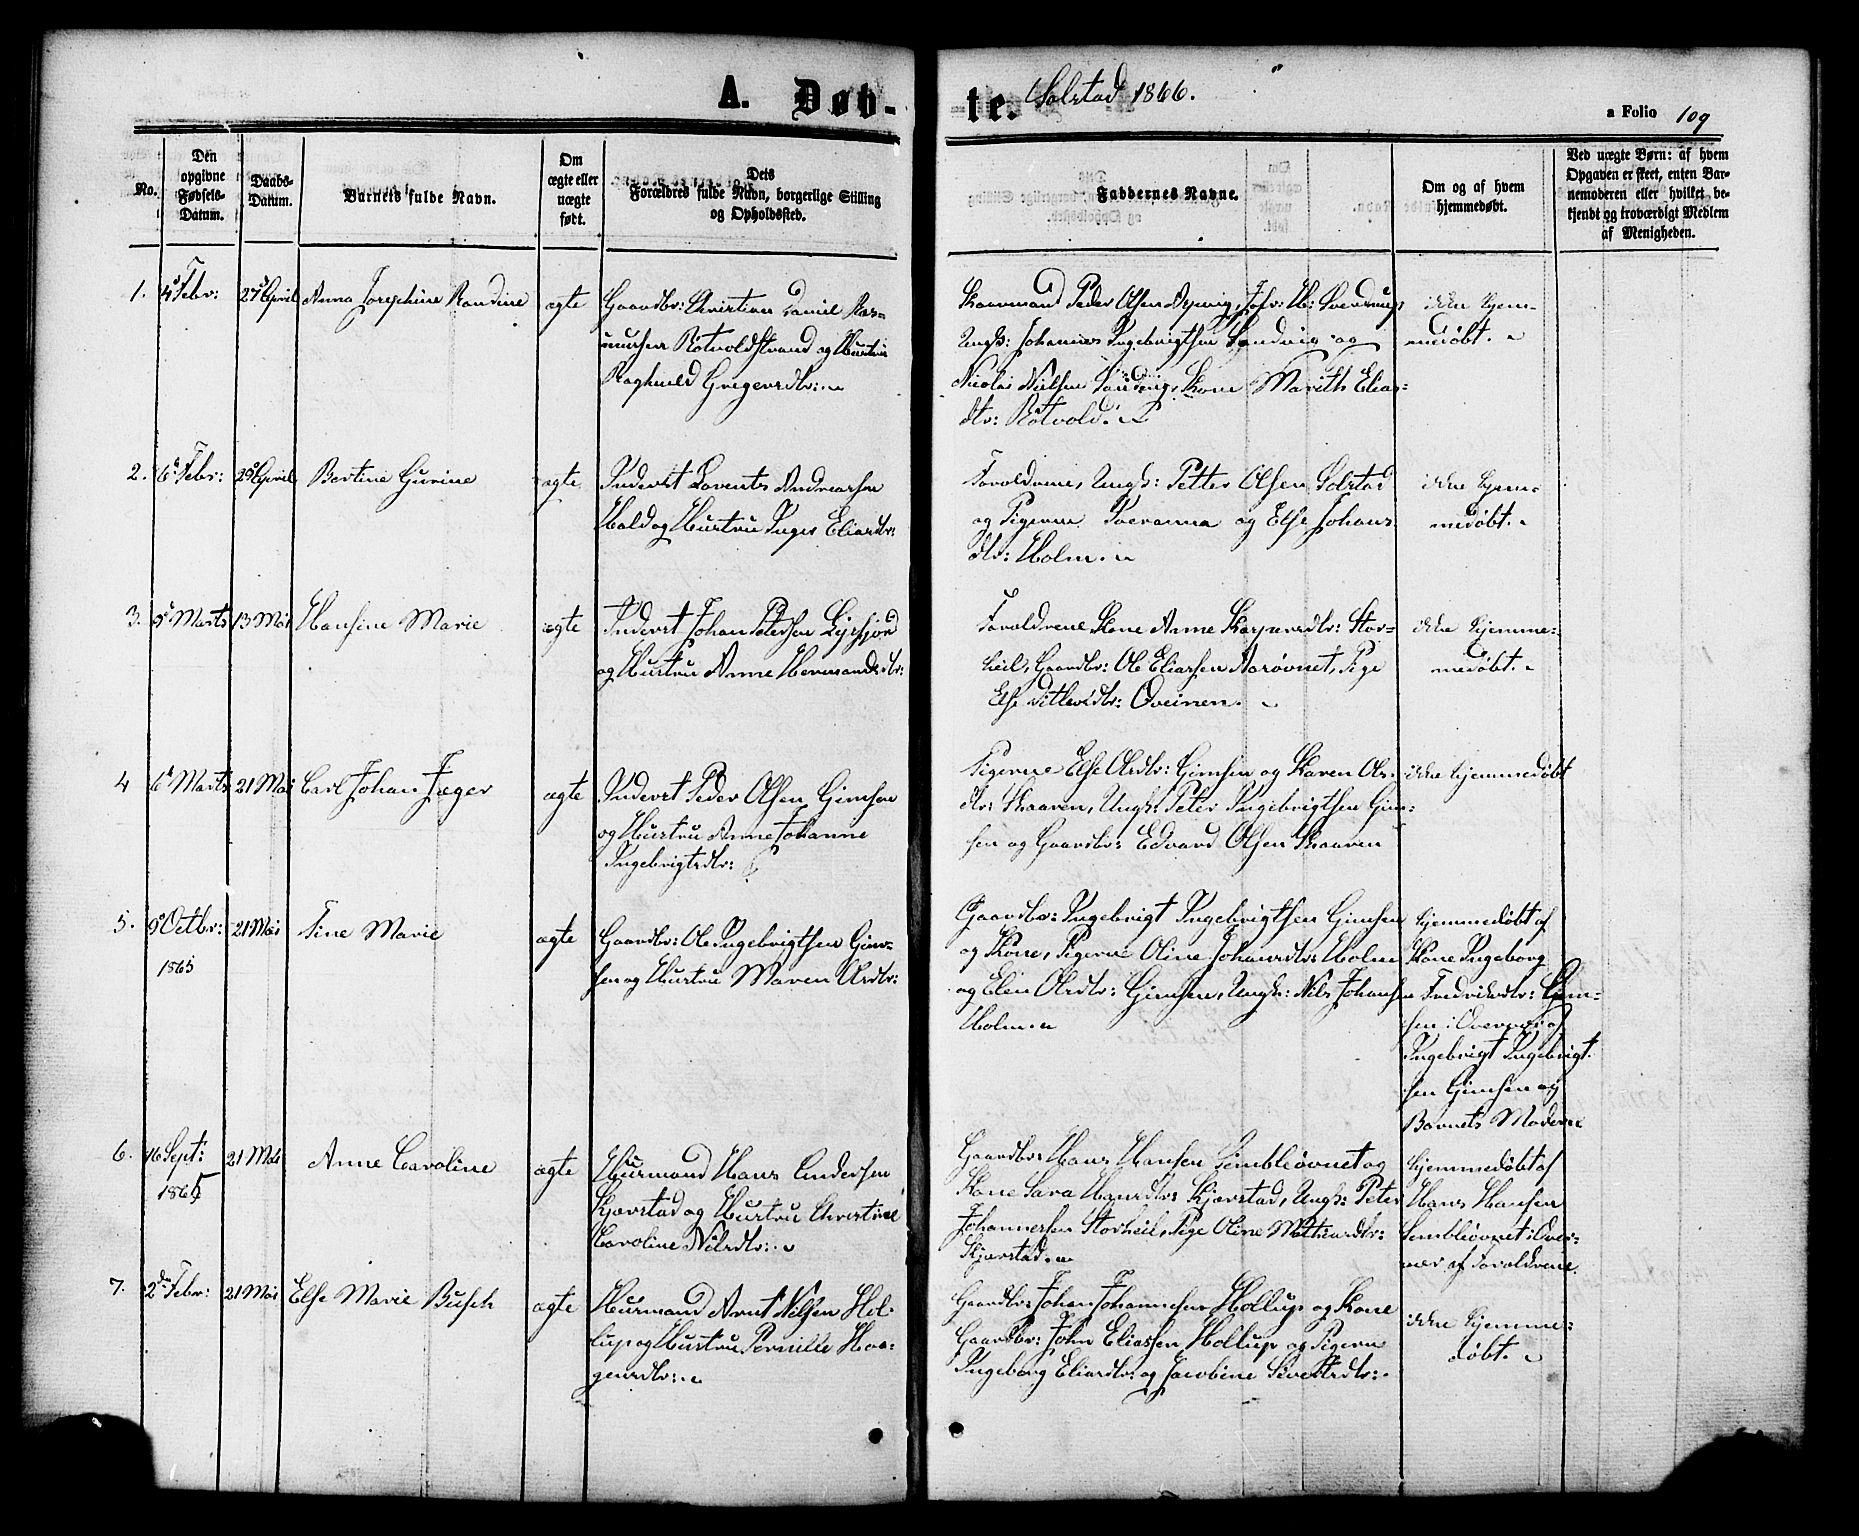 A. Døb-
te. Solstad 1866.
a Folio 109
No.
Den opgivne Fødsels-Datum.
Daabs-Datum.
Barnets fulde Navn.
Om ægte eller uægte født.
Dets Forældres fulde Navn, borgerlige Stilling og Opholdssted.
Faddernes Navne.
Om og af hvem hjemmedøbt.
Ved uægte Børn: af hvem Opgaven er skeet, enten Barnemoderen eller hvilket bekjendt og troværdigt Medlem af Menigheden.
1. 4de Febr: 27de April Anna Josephine Randine ægte
Gaardbr: Christian Daniel Ras-
mussen Røtvoldstrand og Hustru
Raghnild Gregersdtr:
Kaarmand Peder Olsen
Ungk: Johannes Ingebrigtsen Sandvig og
Nicolai Nielsen Sandvig, Kone Marith Elias-
dtr: Røtvold.
ikke hjem-
medøbt.
2. 6te Febr: 29de April Bertine Gurine ægte
Inderst Lorents Andreassen
Hald og Hustru Inger Eliasdtr:
Forældrene, Ungk: Petter Olsen Solstad
og Pigerne Povranna og Else Johans
dtr: Holm.
ikke hjem-
medøbt.
3. 5te Marts 13 Mai Hansine Marie ægte
Inderst Johan Petersen
og Hustru Anne Hermansdtr:
Forældrene Kone Anne Kaspersdtr: Stor-
heil, Gaardbr: Ole Eliassen Aarøvnet, Pige
Else Ditlevsdtr: Oveinen.
ikke hjemme-
medøbt.
4 6te Marts 21 Mai Carl Johan Jæger ægte
Inderst Peder Olsen Gimsen
og Hustru Anne Johanne
Ingebrigtsdtr:
Pigerne Else Olsdtr: Gimsen og Karen Ols-
dtr: Skaaren, Ungk: Peter Ingebrigtsen Gim-
sen og Gaardbr: Edvard Olsen Skaaren
ikke hjemmedøbt
5. 9de Octbr: 1865 21 Mai Tine Marie ægte
Gaardbr: Ole Ingebrigtsen Gim-
sen og Hustru Maren Olsdtr:
Gaardbr: Ingebrigt Ingebrigtsen Gimsen
og Kone, Pigerne Oline Johansdtr: Holm
og Elen Olsdtr: Gimsen, Ungk: Nils Johansen
Holm.
hjemmedøbt af
Kone Ingeborg
Fredriksdtr: Gim-
sen i Overvær af
Ingebrigt Ingebrigt-
sen Gimsen og
Barnets Moder
6. 16 Sept: 1865 21 Mai Anne Caroline ægte
Huusmand Hans Andersen
Kjærstad og Hustru Christine
Caroline Nilsdtr:
Gaardbr: Hans Hansen Simbleøvnet og
Kone Sara Hansdtr: Kjærstad, Ungk: Peter
Johannessen Storheil, Pige Oline Mathiasdtr:
Kjærstad.
hjemmedøbt af
Hans Hansen
Simbleøvnet i Over-
vær af Forældrene.
7. 2den Febr: 21 Mai Else Marie Busch ægte
Huusmand Arnt Nilsen Hol-
lup og Hustru Pernille Haa-
gensdtr:
Gaardbr: Johan Johannesen Hollup og Kone
Gaardbr: John Eliassen Hollup og Pigerne
Ingeborg Eliasdtr: og Jacobine Sivertsdtr:
ikke hjemme-
døbt.